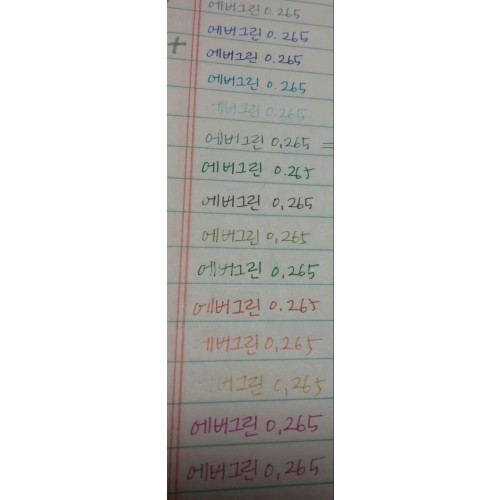 에버그린 0.265
에버그린 0.265
+ 에버그린 0.265
에버그린 0.265
에버그린 0.265
에버그린 0,265 =
에버그린 0.265
에버그린 0,265
에버그린 0,265
에버그린 0,265
에버그린 0.265
에버그린 0,265
버그린 0,265
에버그린 0,265
에버그린 0,265